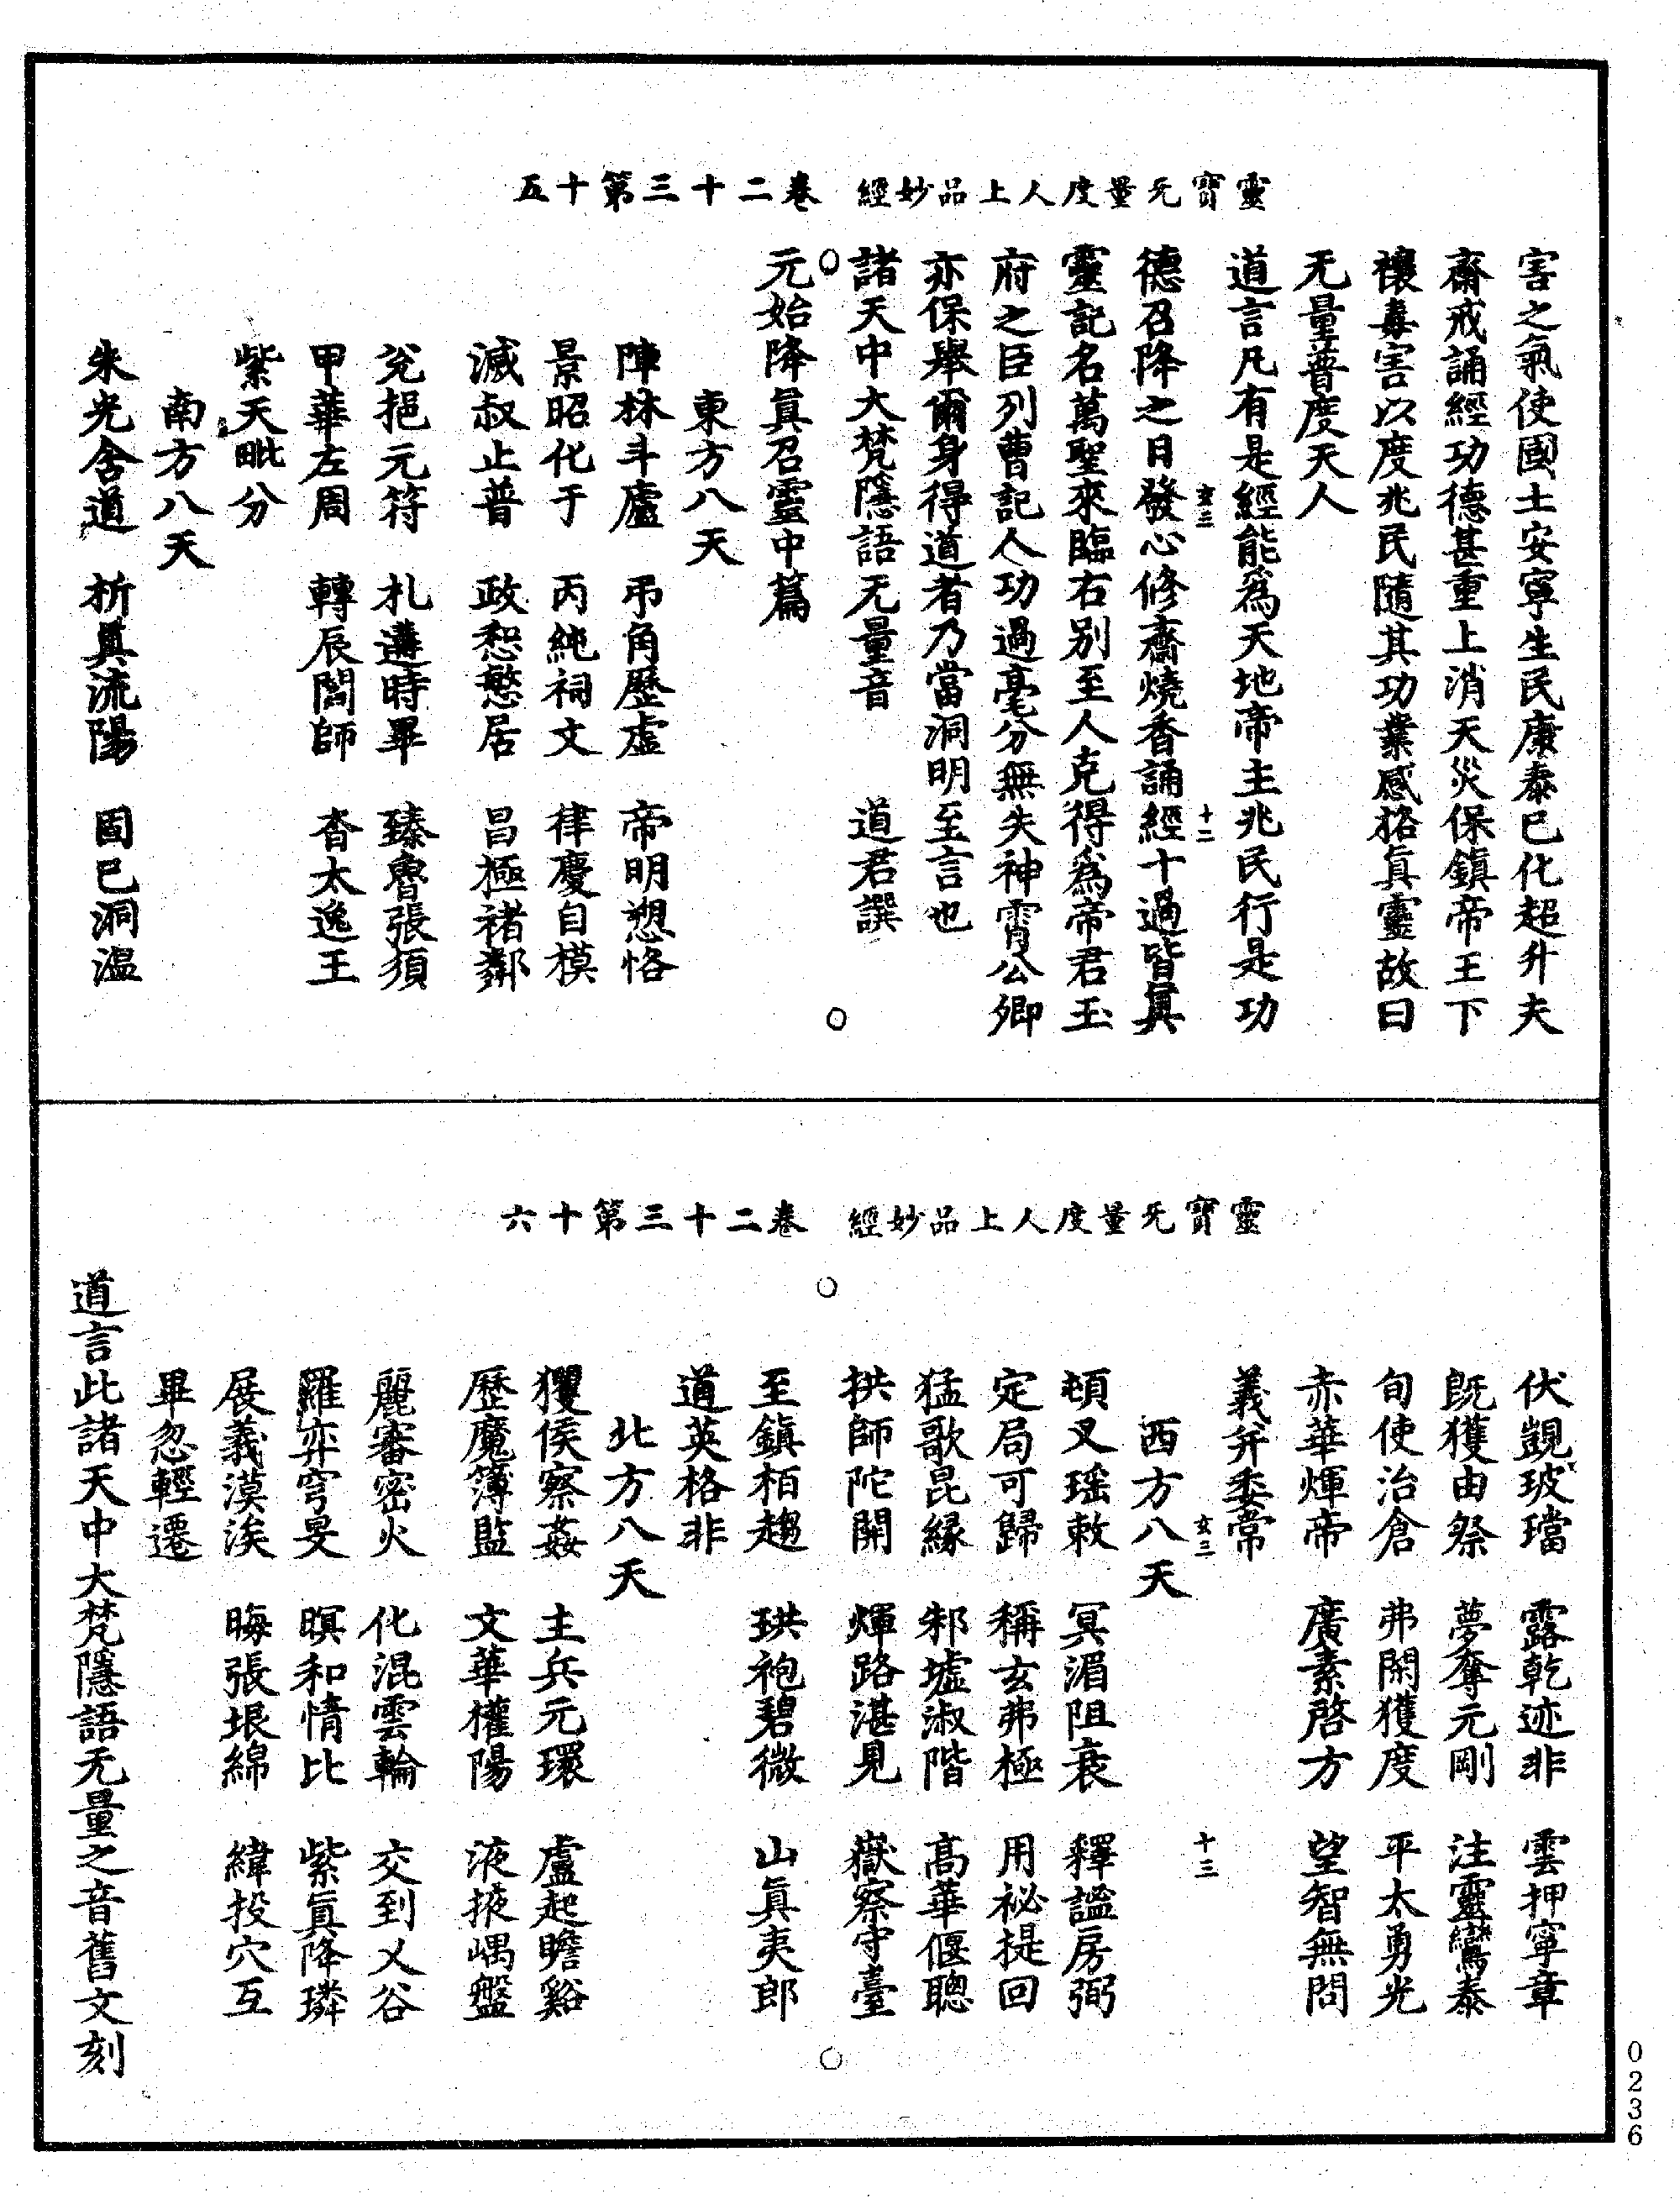 靈寶无量度人上品妙經 卷二十三第十五
害之氣使國土安寧生民康泰已化超升夫
齋戒誦經功德甚重上消天災保鎮帝王下
禳毒害以度兆民隨其功業感格眞靈故曰
无量普度天人
道言凡有是經能爲天地帝主兆民行是功
玄三 十二
德召降之日發心修齋燒香誦經十過皆眞
靈記名萬聖來臨右别至人克得爲帝君玉
府之臣列曹記人功過毫分無失神霄公卿
亦保舉爾身得道者乃當洞明至言也
諸天中大梵隱語无量音 道君譔
元始降眞召靈中篇
東方八天
陣林斗廬 帀角歷虛 帝明愬恪
景昭化于 丙純祠文 律慶自模
減叔止普 政恕慜居 昌極褚鄰
兊挹元符 札遘時畢 臻魯張須
甲華左周 轉辰閤師 杳太逸王
紫天毗分
南方八天
朱光舍道 析眞流陽 固巳洞溫
靈寶无量度人上品妙經 卷二十三第十六
伏覬玻璫 露乾迹非 雲押寧章
旣獲由祭 夢奪元剛 注靈鸞泰
旬使治倉 弗閑獲度 平太勇光
赤華煇帝 廣素啓方 望智無問
義弁委常
玄三 十三
西方八天
頓叉瑶敕 冥湄阻衰 釋謐房弼
定局可歸 稱玄弗極 用祕提回
猛歌昆縁 邾墟淑階 髙華偃聰
拱師陀開 煇路湛見 嶽察守臺
至鎮栢趨 珙袍碧微 山眞夷郎
道英格非
北方八天
玃侯察姦 主兵元環 盧起瞻谿
歷魔簿監 文華權陽 液掖嵎盤
麗審密火 化混雲輪 交到乂谷
羅弈穹旻 暝和情比 紫眞降璘
展義漠涘 晦張垠綿 緯投穴互
畢忽輕遷
道言此諸天中大梵隱語无量之音舊文刻
0236